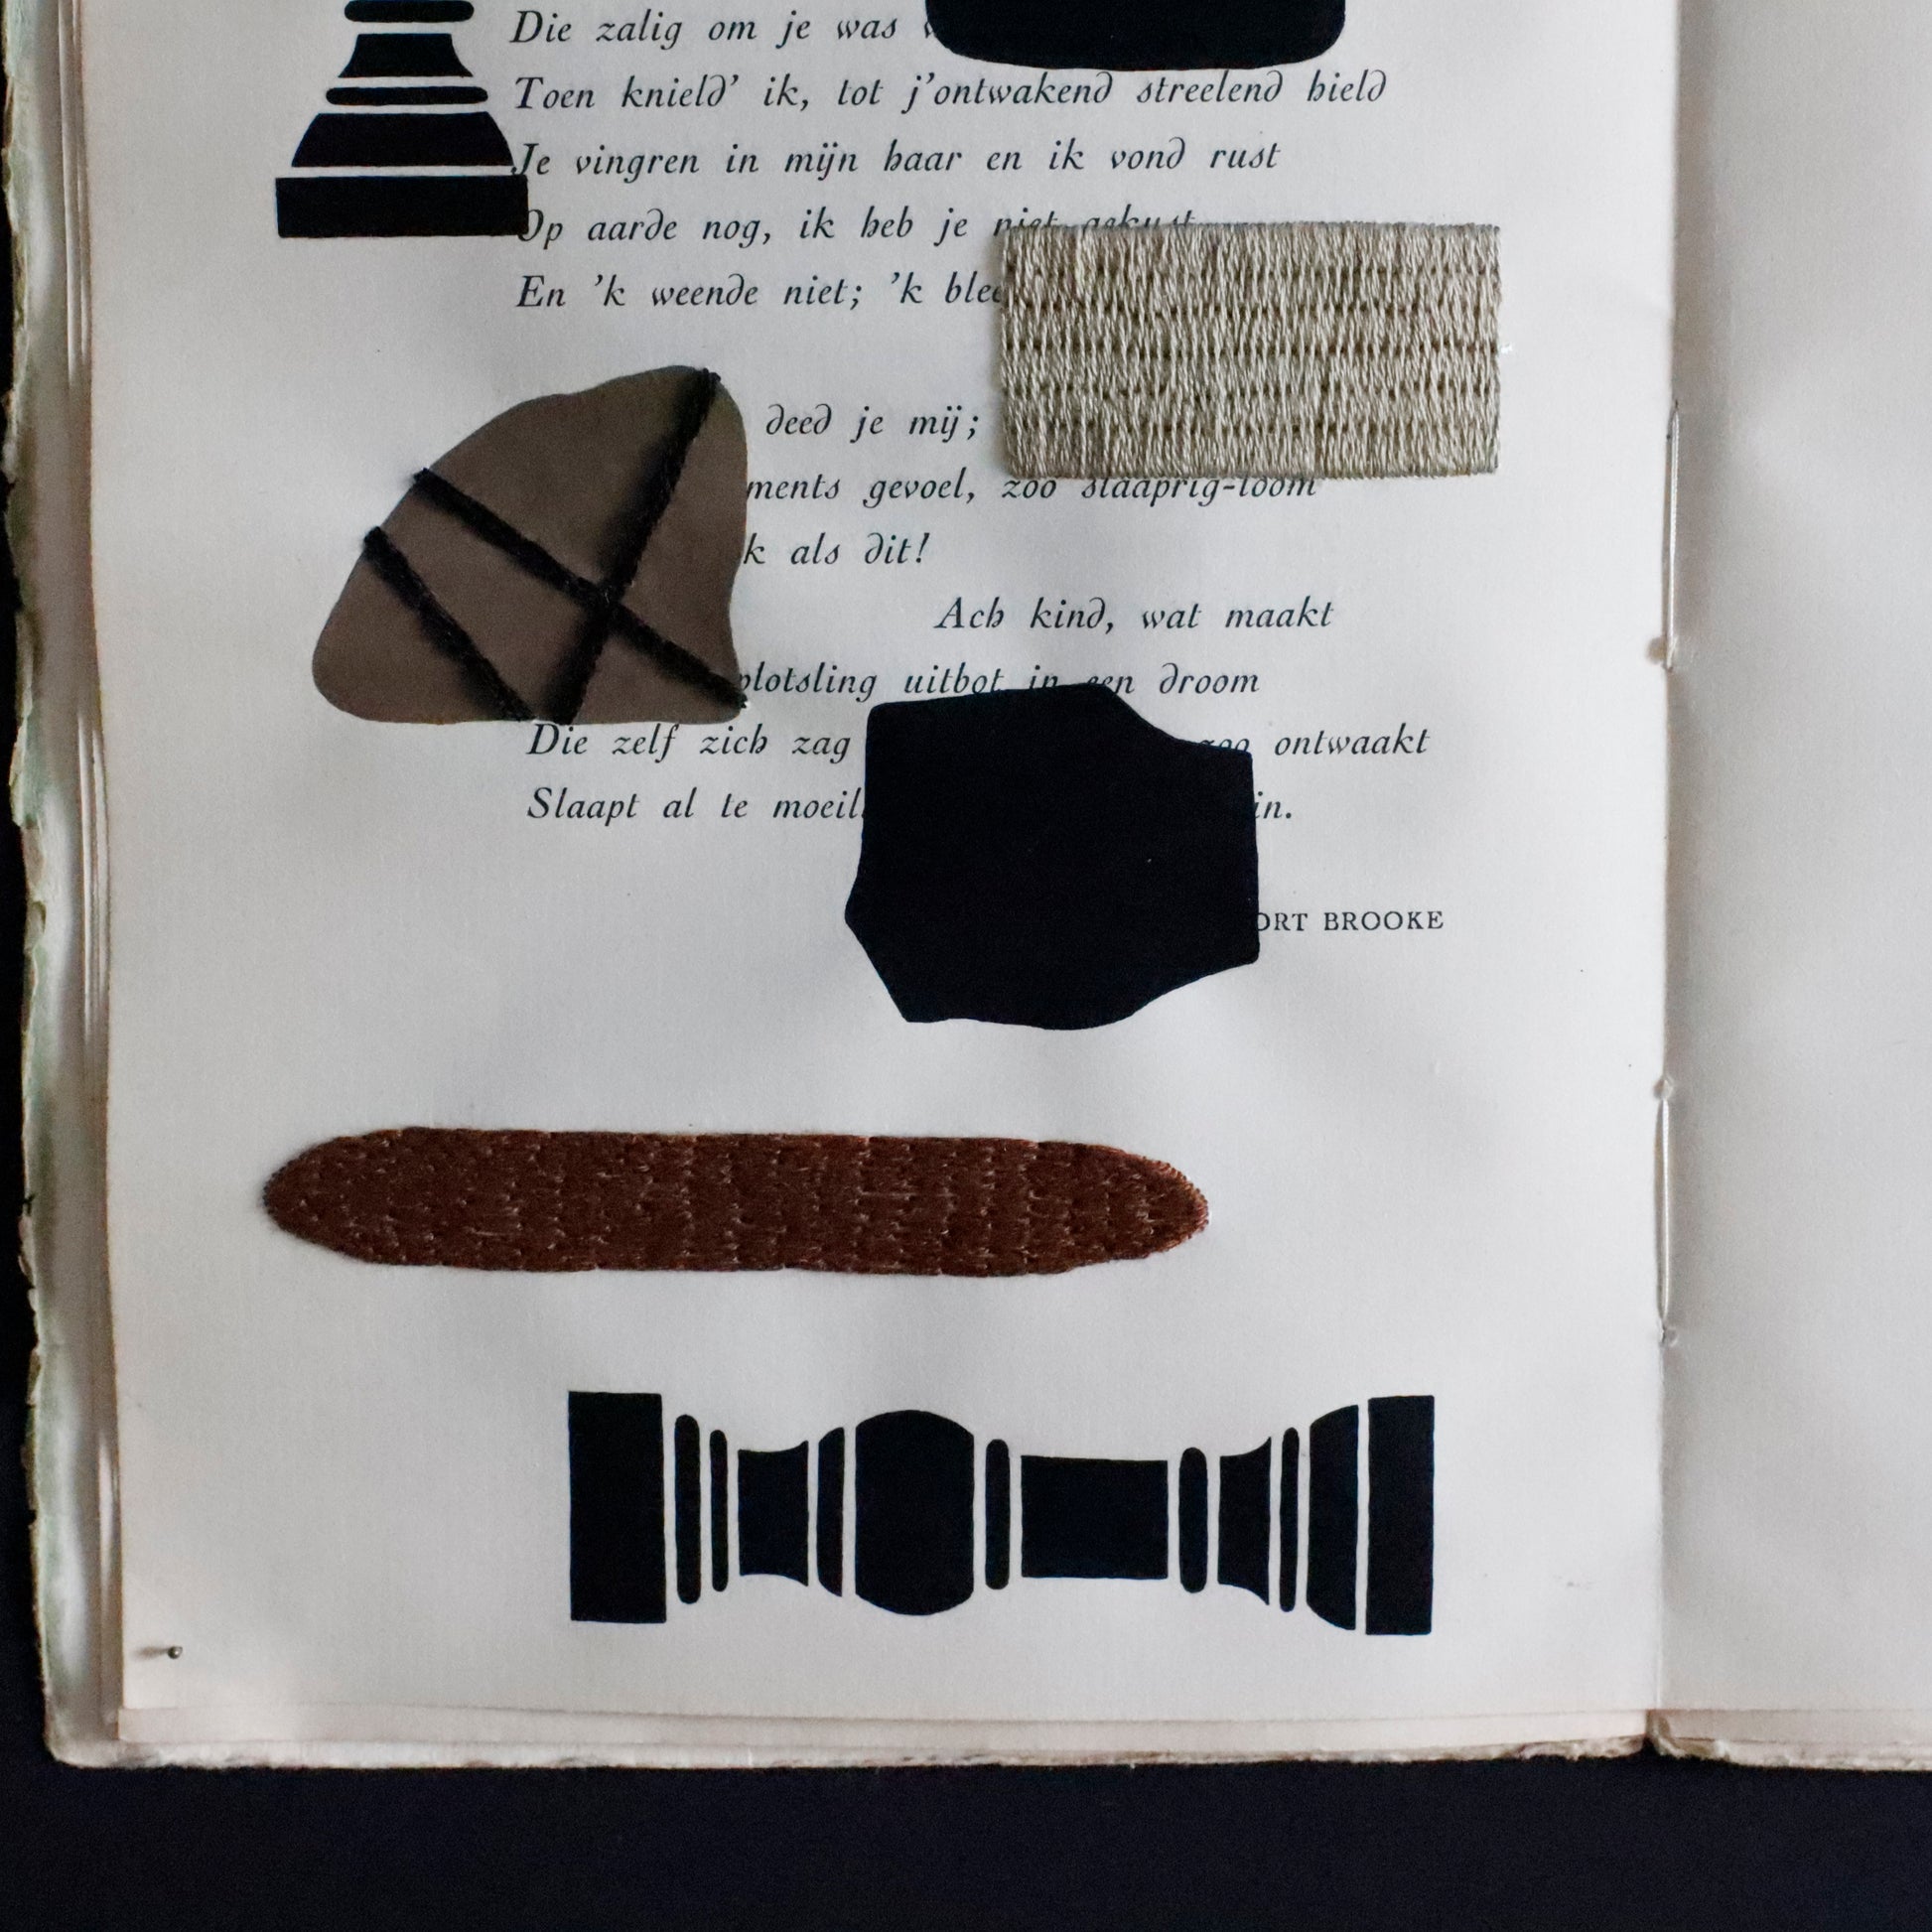 Die zalig om je was
Toen knield' ik, tot j'ontwakend streelend hield
Je vingren in mijn haar en ik vond rust
Op aarde nog, ik heb je niet gekust
En 'k weende niet; 'k
deed je mij;
gevoel, zoo slaaprig-loom
als dit!
Ach kind, wat maakt
plotsling uitbot in een droom
Die zelf zich zag zoo ontwaakt
Slaapt al te
BROOKE